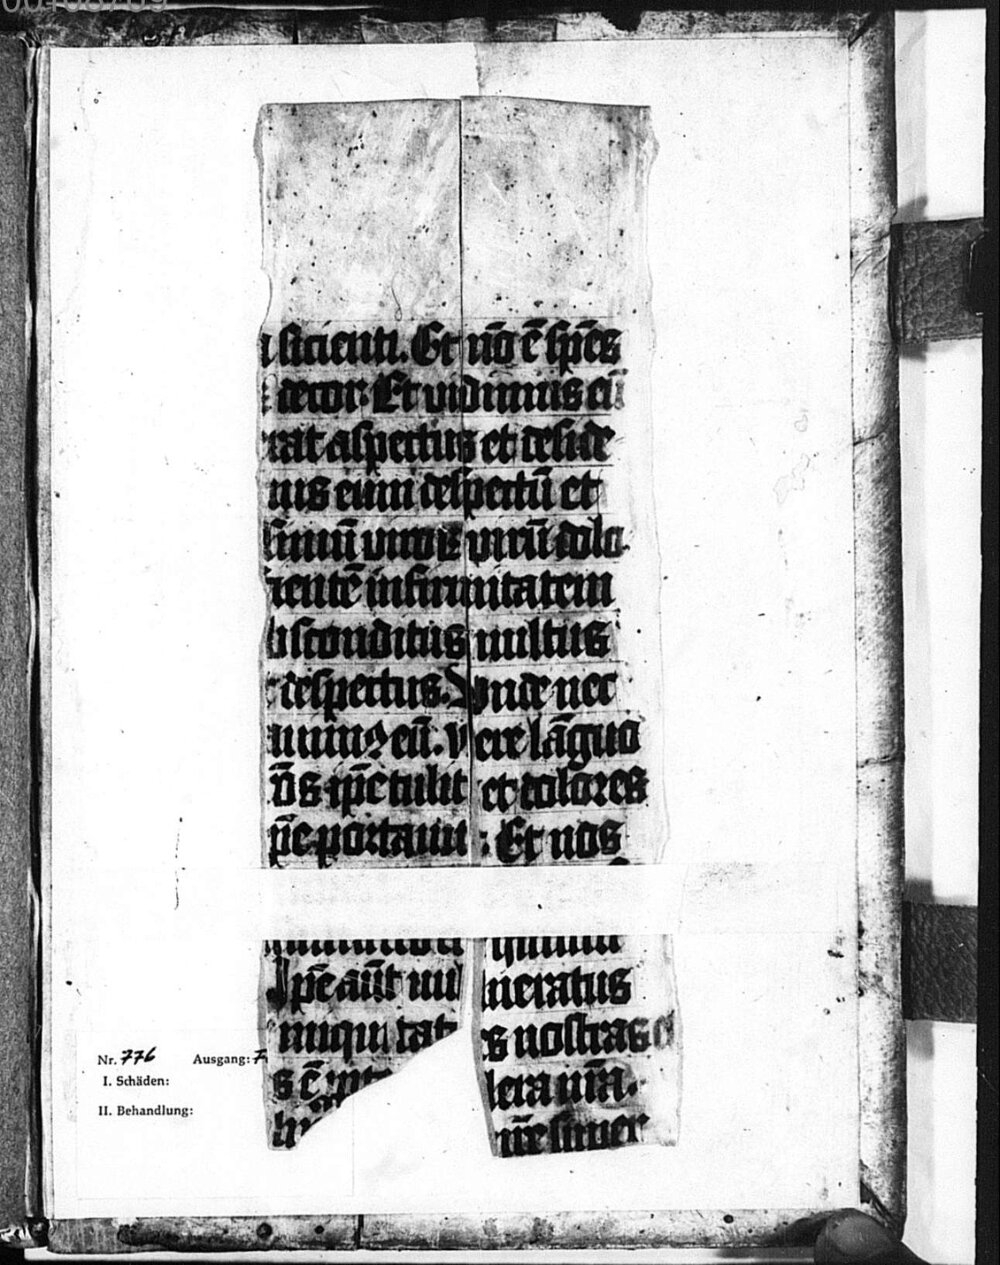 sicienti. Et nō ē spēs
decor: Et vidimus eū
rat aspectus et deside
mus eum despectū et
simū virorū virū dolo
ientē infirmitatem
absconditus vultus
t despectus. Vnde nec
auimꝰ eū. Vere lāguo
ōs ip̄e tulit et dolores
ip̄e portauit: Et nos
Ip̄e aūt vulneratus
iniquitates nostras
lera nr̄a.
Nr. 776 Ausgang: 7
I. Schäden:
II. Behandlung: